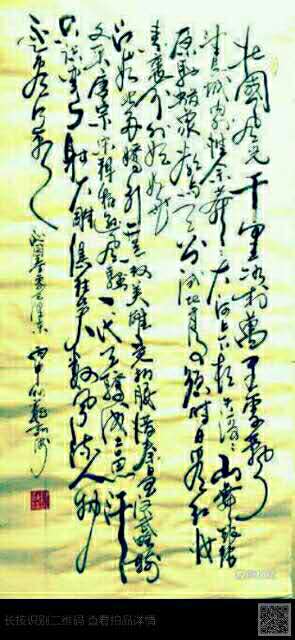 北國風光千里冰封萬里雪飄
望長城內外惟餘莽莽大河上下頓失滔滔山舞銀蛇
原馳蠟象欲與天公試比高須晴日看紅妝
素裹分外妖嬈
江山如此多嬌引無數英雄競折腰惜秦皇漢武略輸
文采唐宗宋祖稍遜風騷一代天驕成吉思汗
只識彎弓射大雕俱往矣數風流人物
還看今朝
丙申
长按识别二维码 查看拍品详情